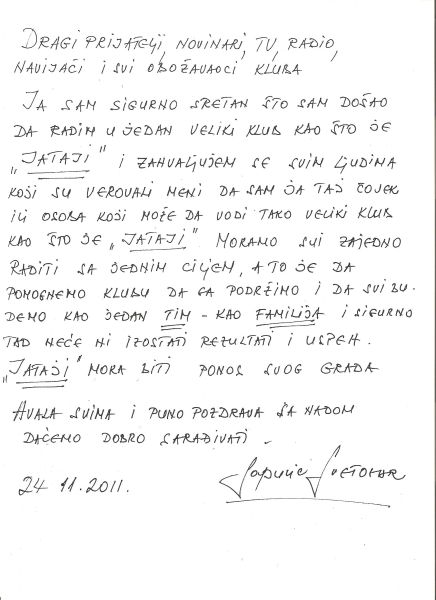 DRAGI PRIJATELJI, NOVINARI, TV, RADIO,
NAVIJAČI I SVI OBOŽAVAOCI KLUBA
JA SAM SIGURNO SRETAN ŠTO SAM DOŠAO
DA RADIM U JEDAN VELIKI KLUB KAO ŠTO JE
„JATAJI" I ZAHVALJUJEM SE SVIM LJUDIMA
KOJI SU VEROVALI MENI DA SAM JA TAJ ČOJEK
ILI OSOBA KOJI MOŽE DA VODI TAKO VELIKI KLUB
KAO ŠTO JE „JATAJI" MORAMO SVI ZAJEDNO
RADITI SA JEDNIM CILJEM, A TO JE DA
POMOGNEMO KLUBU DA GA PODRŽIMO I DA SVI BU-
DEMO KAO JEDAN TIM - KAO FAMILIJA I SIGURNO
TAD NEĆE NI IZOSTATI REZULTATI I USPEH.
„JATAJI" MORA BITI PONOS SVOG GRADA
HVALA SVIMA I PUNO POZDRAVA SA NADOM
DAĆEMO DOBRO SARAĐIVATI.
24 11.2011.